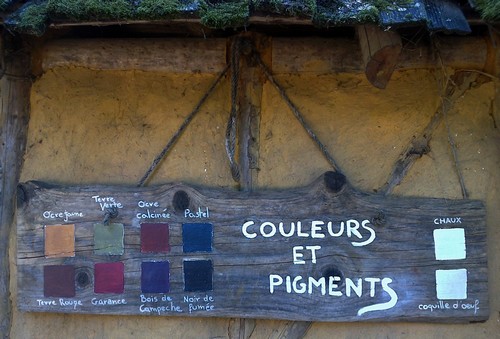 Ocre jaune
Terre
Verte
Ocre
calcinée
Pastel
Terre Rouge
Garance
Bois de
Campeche
Noir de
fumée
COULEURS
ET
PIGMENTS
CHAUX
coquille d'oeuf